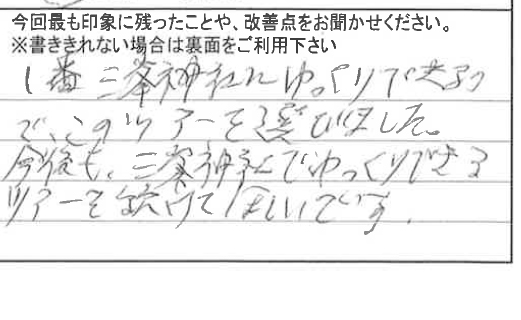 今回最も印象に残ったことや、改善点をお聞かせください。
※書ききれない場合は裏面をご利用下さい
1番三峯神社にゆっくりできるの
で、このツアーを選びました。
今後も、三峯神社でゆっくりできる
ツアーを続けてほしいです。